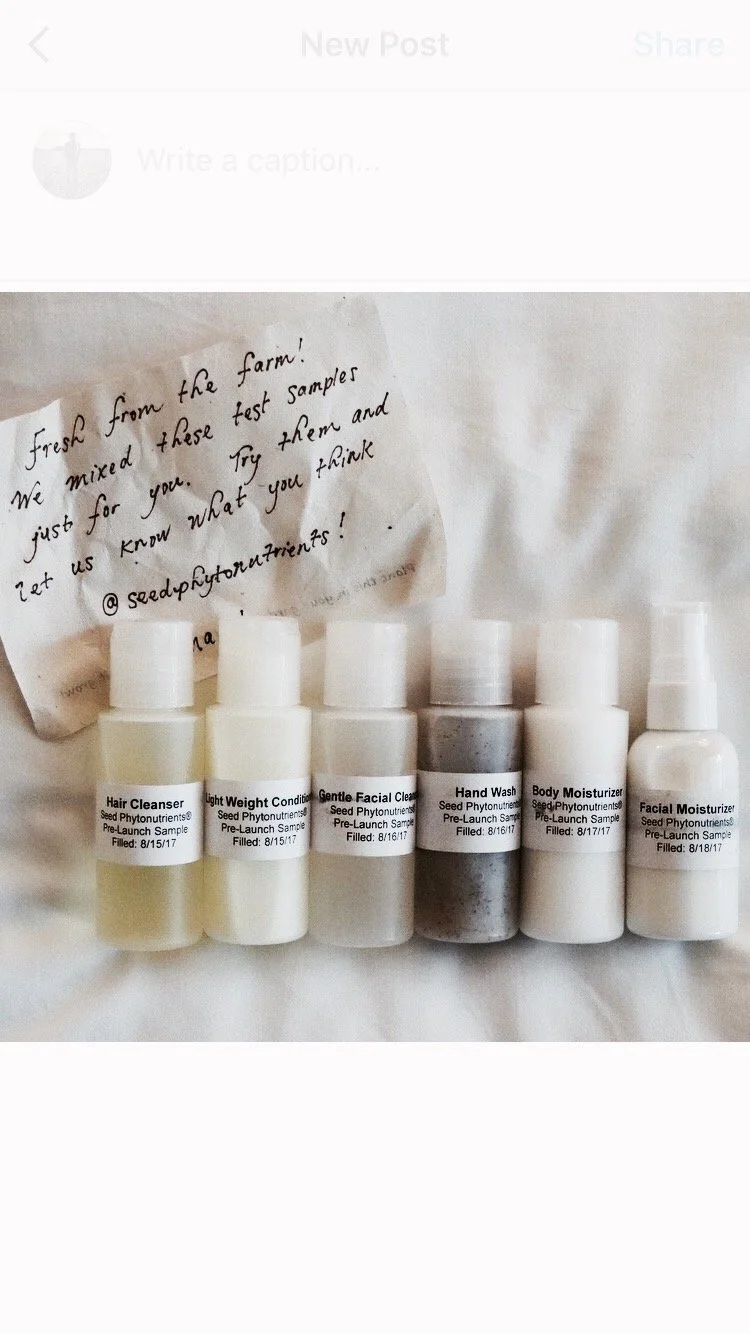 New Post
Share
Write a caption...
Fresh from the farm!
We mixed these test samples
just for you. Try them and
let us know what you think
@seedphytonutrients!
Plant this in you
grow!
Hair Cleanser
Seed Phytonutrients®
Pre-Launch Sample
Filled: 8/15/17
Light Weight Condition
Seed Phytonutrients®
Pre-Launch Sample
Filled: 8/15/17
Gentle Facial Clean
Seed Phytonutrients®
Pre-Launch Sample
Filled: 8/16/17
Hand Wash
Seed Phytonutrients
Pre-Launch Sample
Filled: 8/16/17
Body Moisturizer
Seed Phytonutrients®
Pre-Launch Sample
Filled: 8/17/17
Facial Moisturizer
Seed Phytonutrients®
Pre-Launch Sample
Filled: 8/18/17